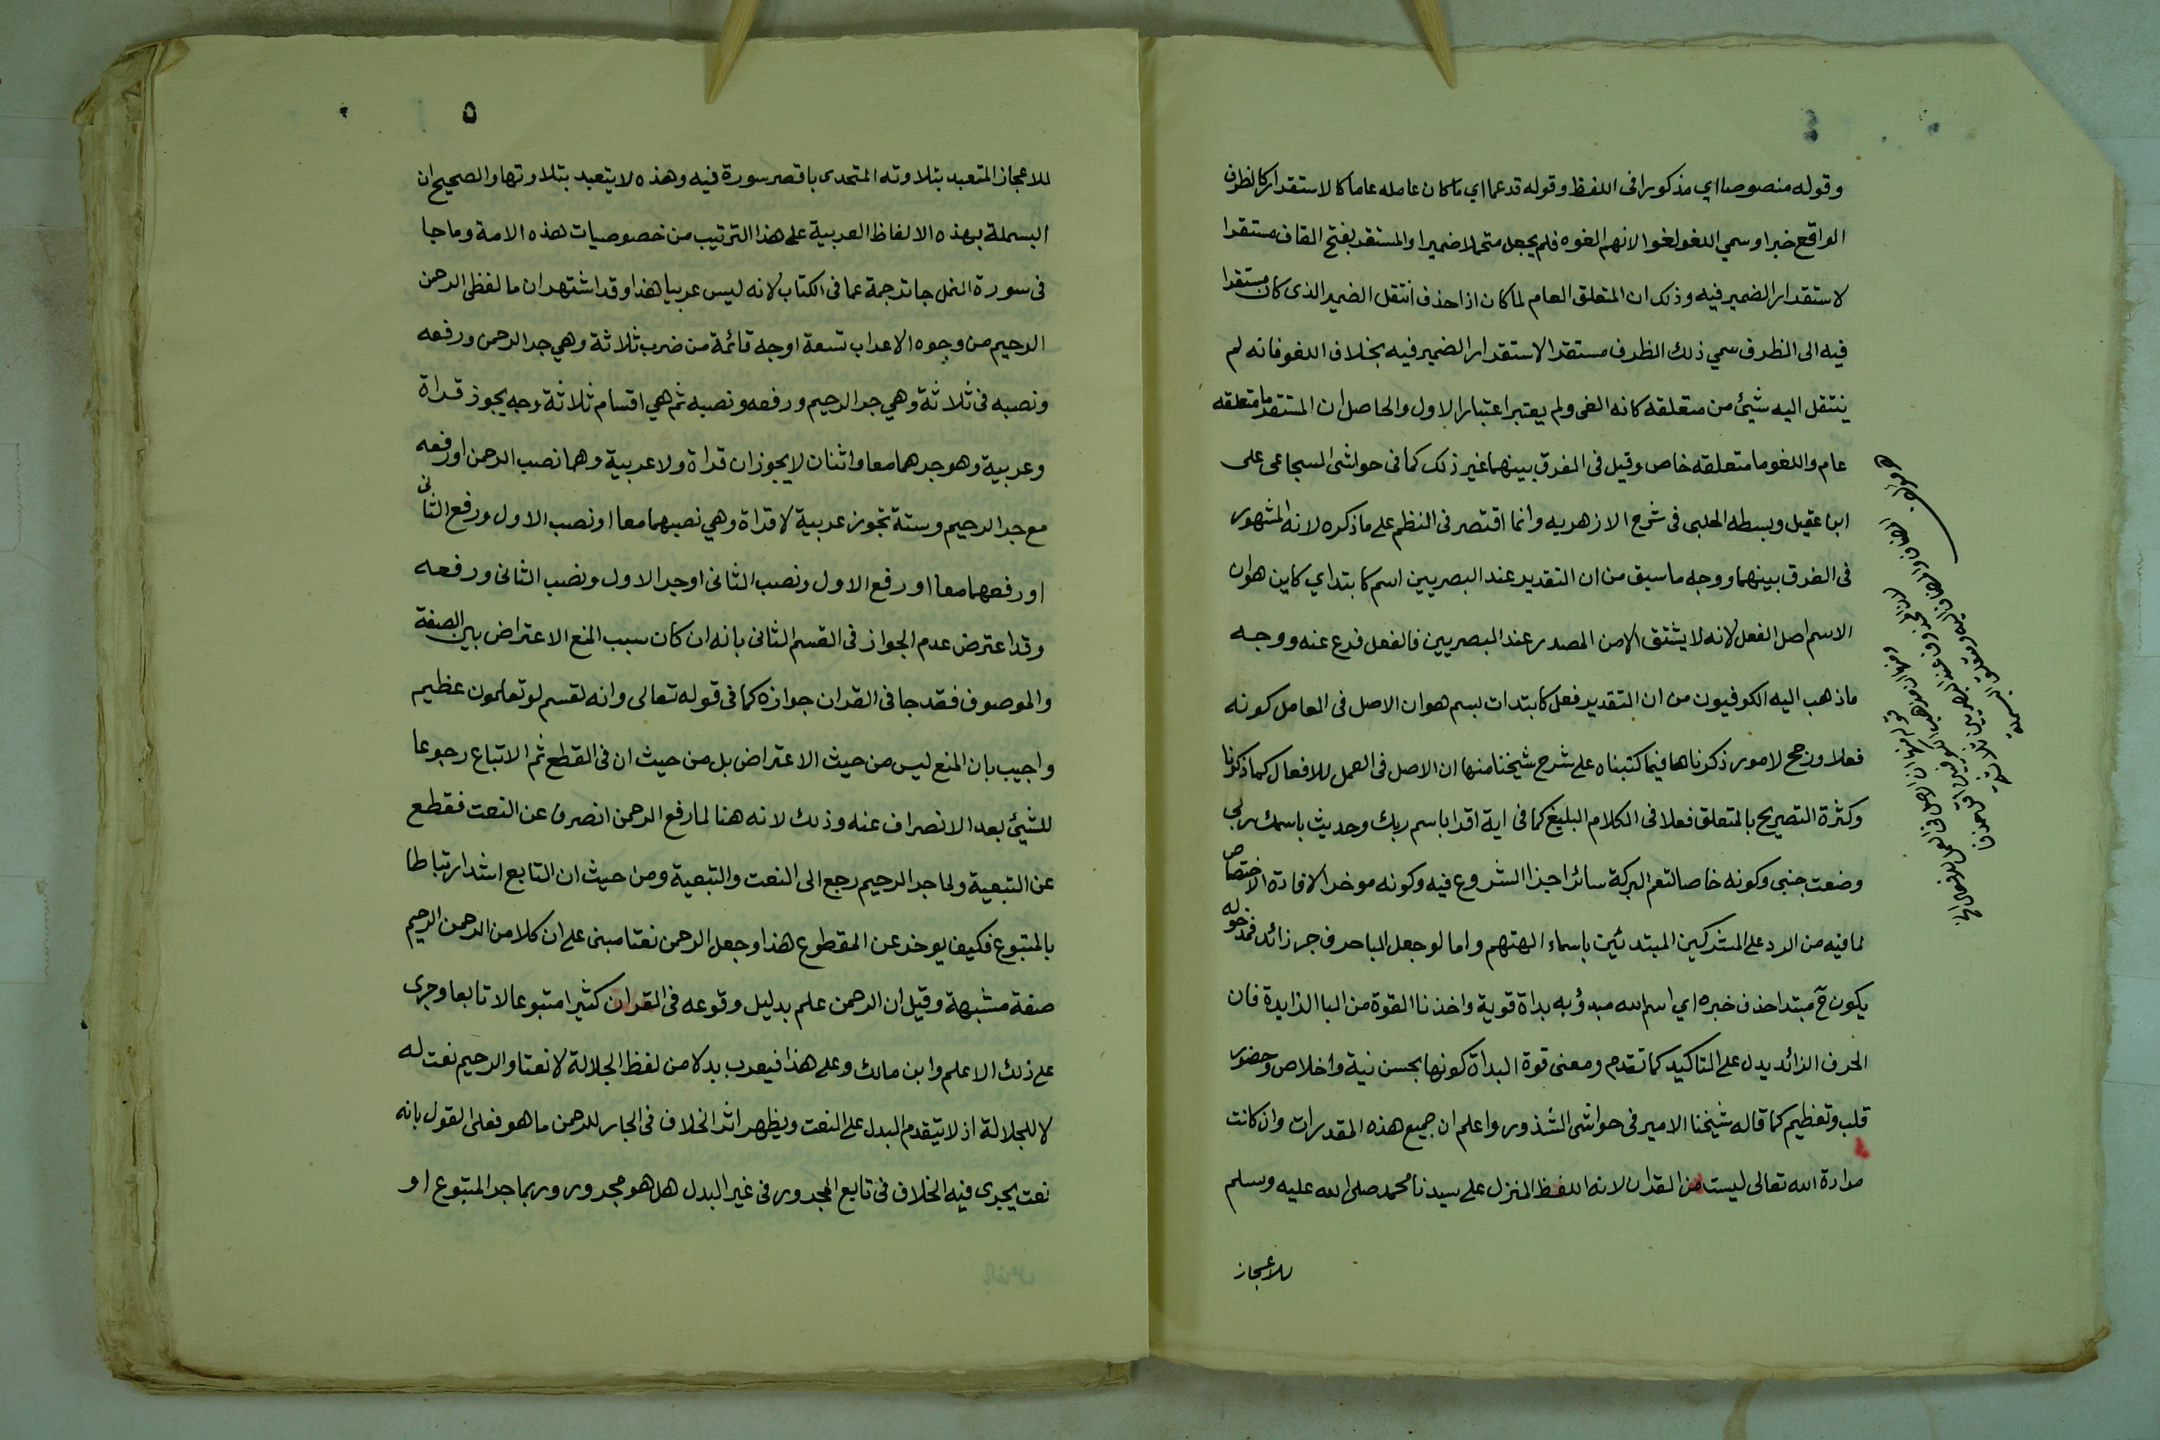 وقوله منصوصا اي مذكورا فى اللفظ وقوله قد عما اي ما كان عامله عاما كالاستقرار كالظرف
الواقع خبرا وسمي اللغو لغوا لانهم الغوه فلم يجعل متحملا ضميرا والمستقر بفتح القاف مستقرا
لاستقرار الضمير فيه وذلك ان المتعلق العام لما كان اذا حذف انتقل الضمير الذى كان مستقرا
فيه الى الظرف سمي ذلك الظرف مستقرا لاستقرار الضمير فيه بخلاف اللغو فانه لم
ينتقل اليه شيئ من متعلقه كانه الغى ولم يعتبر اعتبار الاول والحاصل ان المستقر ما متعلقه
عام واللغو ما متعلقه خاص وقيل فى الفرق بينهما غير ذلك كما فى حواشى السجاعى على
ابن عقيل وبسطه الحلبى فى شرح الازهريه وانما اقتصر فى النظم على ما ذكره لانه المشهور
فى الفرق بينهما ووجه ما سبق من ان التقدير عند البصريين اسم كابتداي كاين هو ان
الاسم اصل الفعل لانه لا يشتق الا من المصدر عند البصريين فالفعل فرع عنه ووجه
ما ذهب اليه الكوفيون من ان التقدير فعل كابتدات بسم هو ان الاصل فى العامل كونه
فعلا ورجح لامور ذكرناها فيما كتبناه على شرح شيخنا منها ان الاصل فى العمل للافعال كما ذكرنا
وكثرة التصريح بالمتعلق فعلا فى الكلام البليغ كما فى اية اقرا باسم ربك وحديث باسمك ربى
وضعت جنبى وكونه خاصا لتعم البركة سائر اجزا الشروع فيه وكونه موخرا لافادة الاختصاص
لما فيه من الرد على المشركين المبتدئين باسماء الهتهم واما لو جعل البا حرف جر زائد فمدخوله
يكون ح مبتدا حذف خبره اي اسم الله مبدؤ به بداة قوية واخذنا القوة من البا الزايدة فان
الحرف الزائد يدل على التاكيد كما تقدم ومعنى قوة البداة كونها بحسن نية واخلاص وحضور
قلب وتعظيم كما قاله شيخنا الامير فى حواشى الشذور واعلم ان جميع هذه المقدرات وان كانت
مرادة الله تعالى ليست من القران لانه اللفظ المنزل على سيدنا محمد صلى الله عليه وسلم
للاعجاز
٥
للاعجاز المتعبد بتلاوته المتحدى باقصر سورة فيه وهذه لا يتعبد بتلاوتها والصحيح ان
البسملة بهذه الالفاظ العربية على هذا الترتيب من خصوصيات هذه الامة وما جا
فى سورة النمل جا ترجمة عما فى الكتاب لانه ليس عربيا هذا وقد اشتهر ان ما لفظى الرحمن
الرحيم من وجوه الاعراب تسعة اوجه قائمة من ضرب ثلاثة وهي جر الرحمن ورفعه
ونصبه فى ثلاثة وهي جر الرحيم ورفعه ونصبه ثم هي اقسام ثلاثة وجه يجوز قراة
وعربية وهو جرهما معا واثنان لا يجوزان قراة ولا عربية وهما نصب الرحمن او رفعه
مع جر الرحيم وستة تجوز عربية لا قراة وهي نصبهما معا او نصب الاول ورفع الثانى
او رفعهما معا او رفع الاول ونصب الثانى او جر الاول ونصب الثانى ورفعه
وقد اعترض عدم الجواز فى القسم الثانى بانه ان كان سبب المنع الاعتراض بين الصفة
والموصوف فقد جا فى القران جوازه كما فى قوله تعالى وانه لقسم لو تعلمون عظيم
واجيب بان المنع ليس من حيث الاعتراض بل من حيث ان فى القطع ثم الاتباع رجوعا
للشيئ بعد الانصراف عنه وذلك لانه هنا لما رفع الرحمن انصرف عن النعت فقطع
عن التبعية ولما جر الرحيم رجع الى النعت والتبعية ومن حيث ان التابع اشد ارتباطا
بالمتبوع فكيف يوخر عن المقطوع هذا وجعل الرحمن نعتا مبنى على ان كلا من الرحمن الرحيم
صفة مشبهة وقيل ان الرحمن علم بدليل وقوعه فى القران كثيرا متبوعا لا تابعا وجرى
على ذلك الاعلم وابن مالك وعلى هذا فيعرب بدلا من لفظ الجلالة لا نعتا والرحيم نعت له
لا للجلالة اذ لا يتقدم البدل على النعت ويظهر اثر الخلاف فى الجار للرحمن ما هو فعلى القول بانه
نعت يجرى فيه الخلاف فى تابع المجرور فى غير البدل هل هو مجرور وربما جر المتبوع او